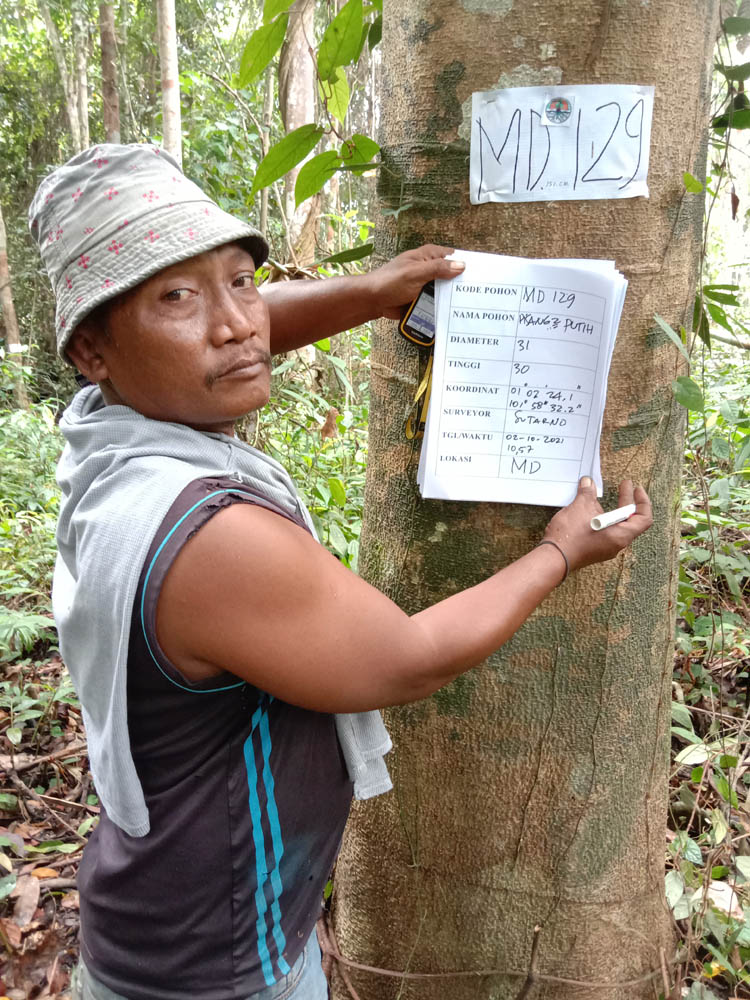 MD.129
151.CM
KODE POHON MD 129
NAMA POHON PUTIH
DIAMETER 31
TINGGI 30
KOORDINAT 01° 02' 24,1"
101° 58' 32.2"
SURVEYOR SUTARNO
TGL/WAKTU 02-10-2021
10,57
LOKASI MD